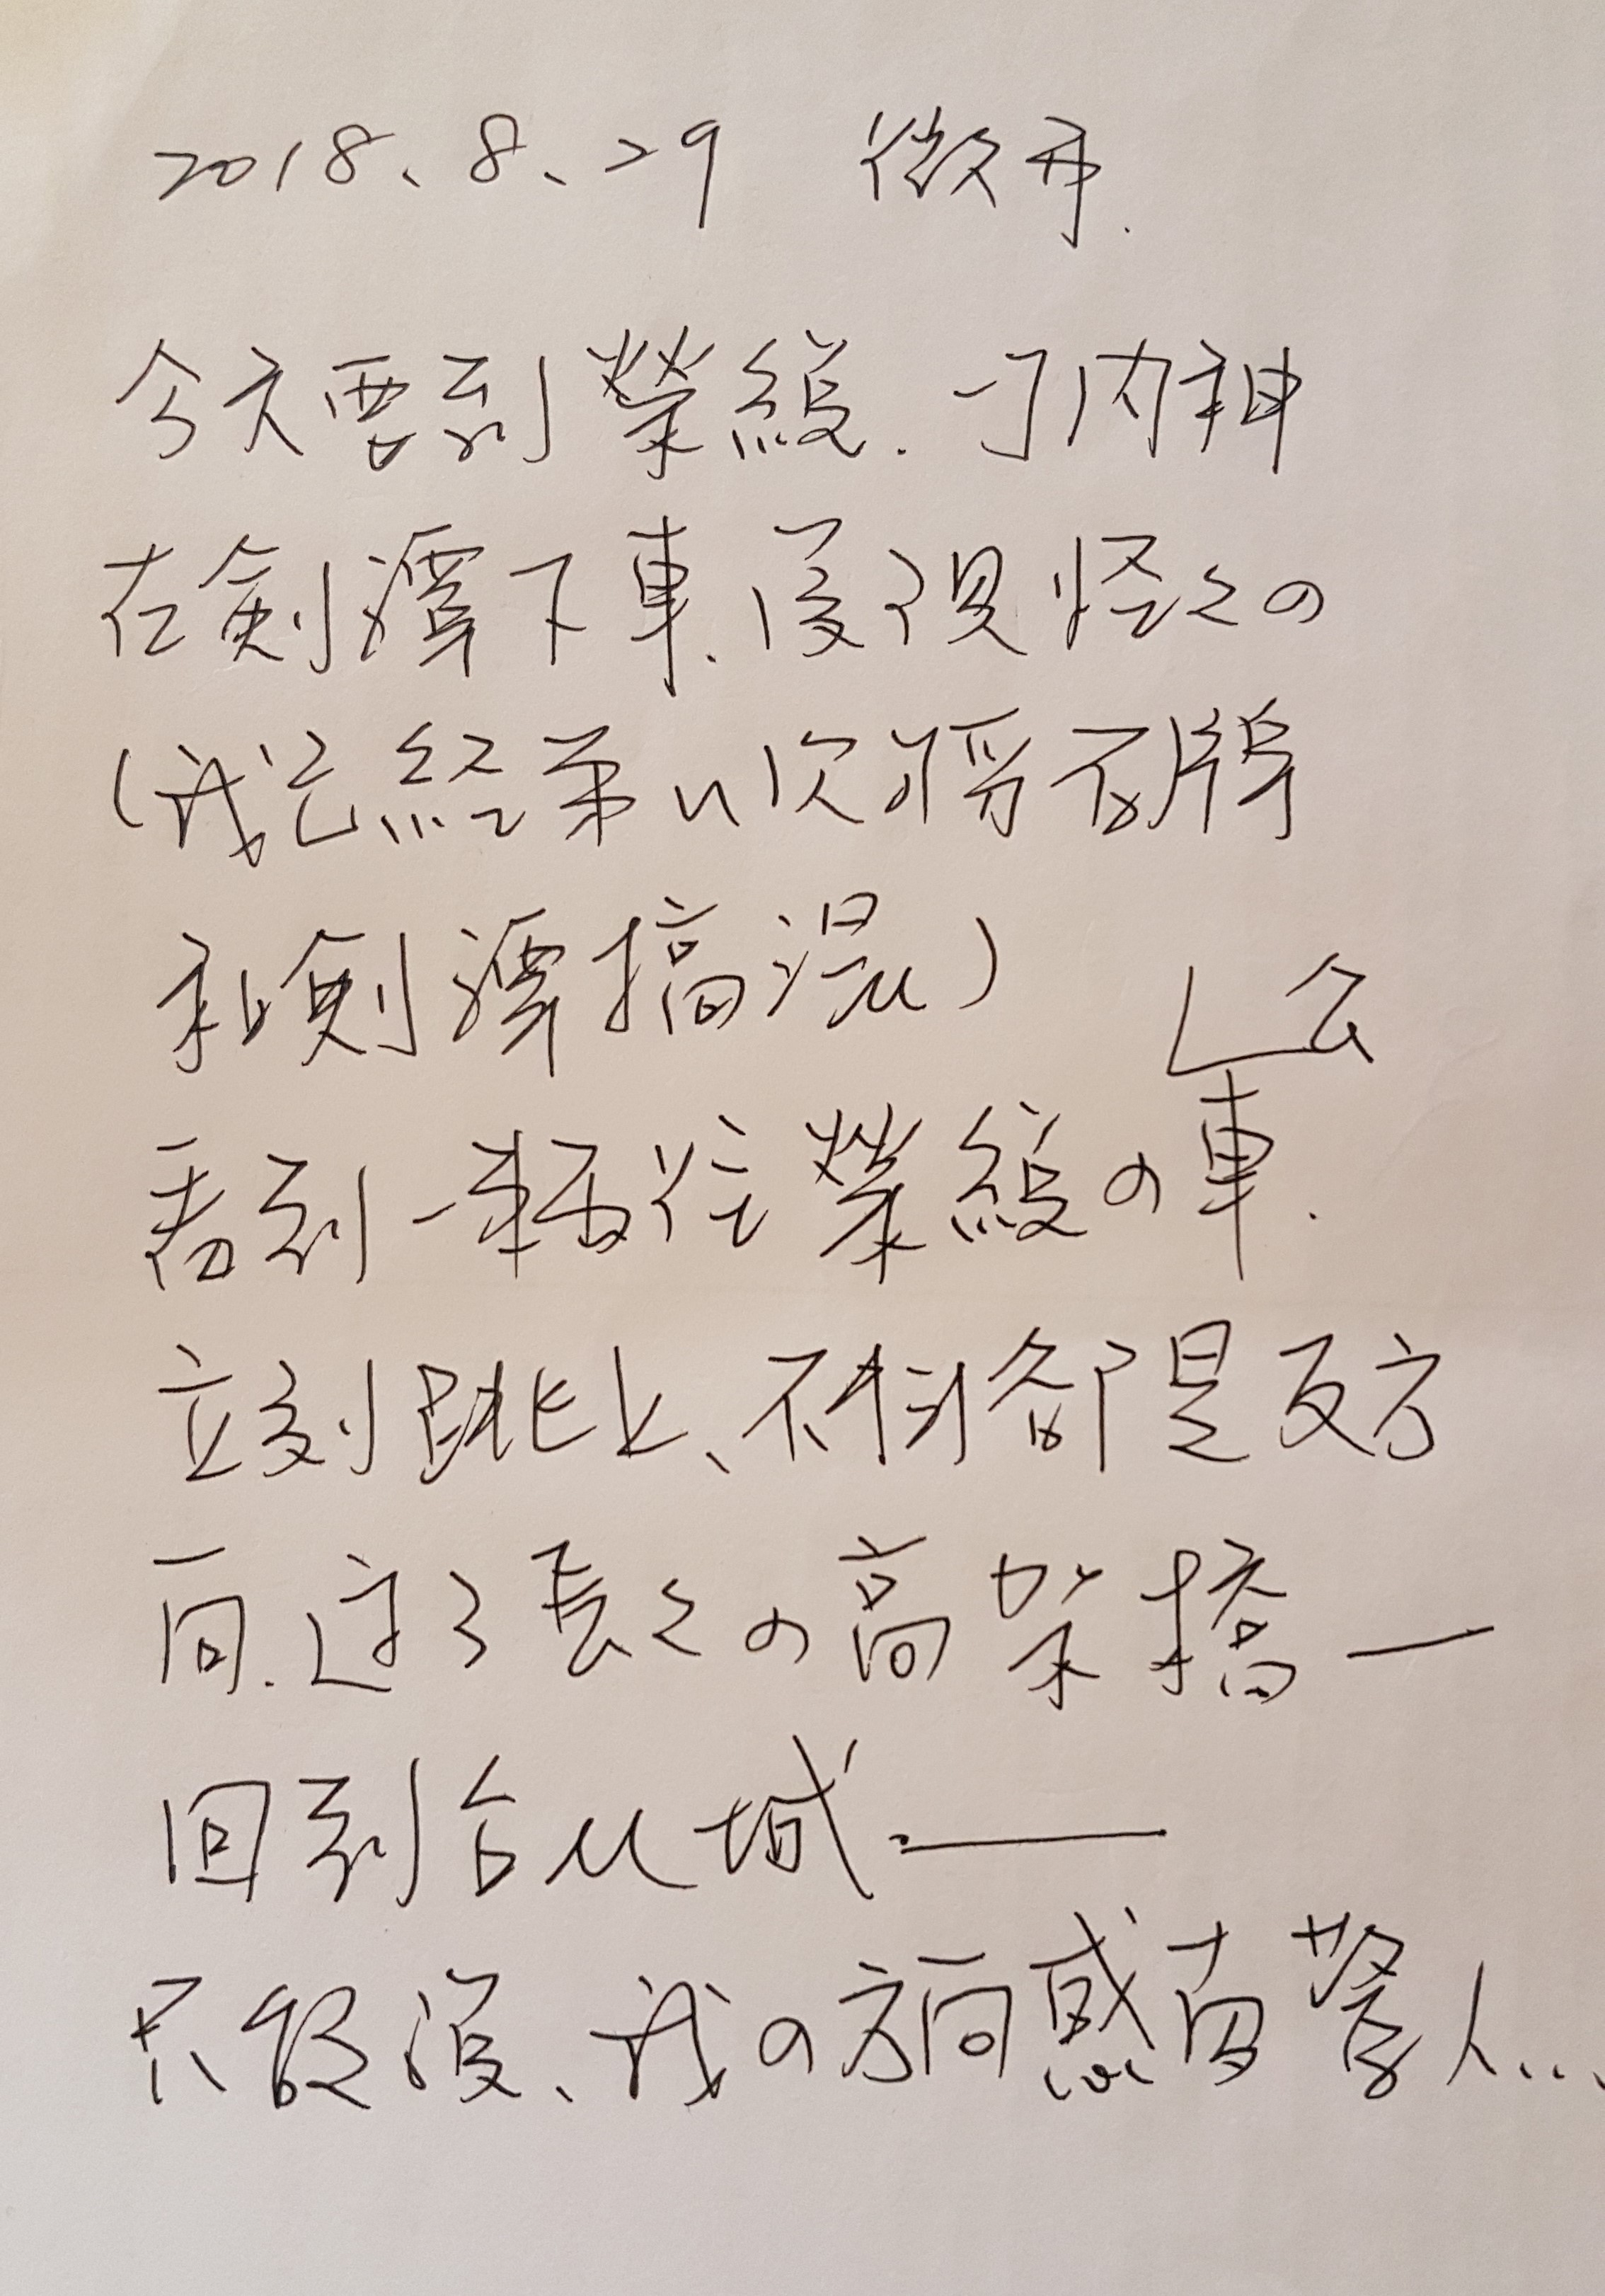 2018、8、29 微雨.
今天要到榮總.一閃神
在劍潭下車.覺得怪怪の
(我已經第N次將石牌
和劍潭搞混)
看到一輛往榮總の公車.
立刻跳上、不料卻是反方
向.過了長長の高架橋—
回到台北城.——
只能說、我の方向感真驚人...